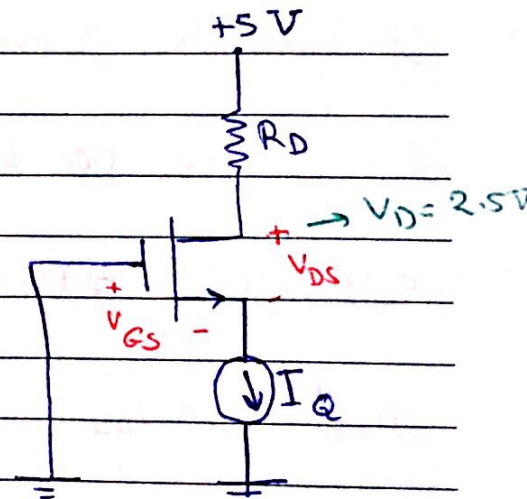 +5 V
R_D
→ V_D = 2.5V
+
V_DS
-
+
V_GS -
I_Q